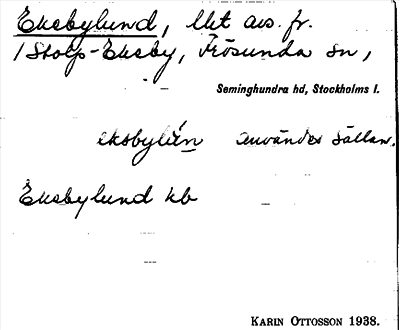 Eksbylund, lht avs. fr.
/Stolp-Eksby, Frösunda sn,
Seminghundra hd, Stockholms l.
eksbylún användes sällan.
Eksbylund kb
KARIN OTTOSSON 1938.